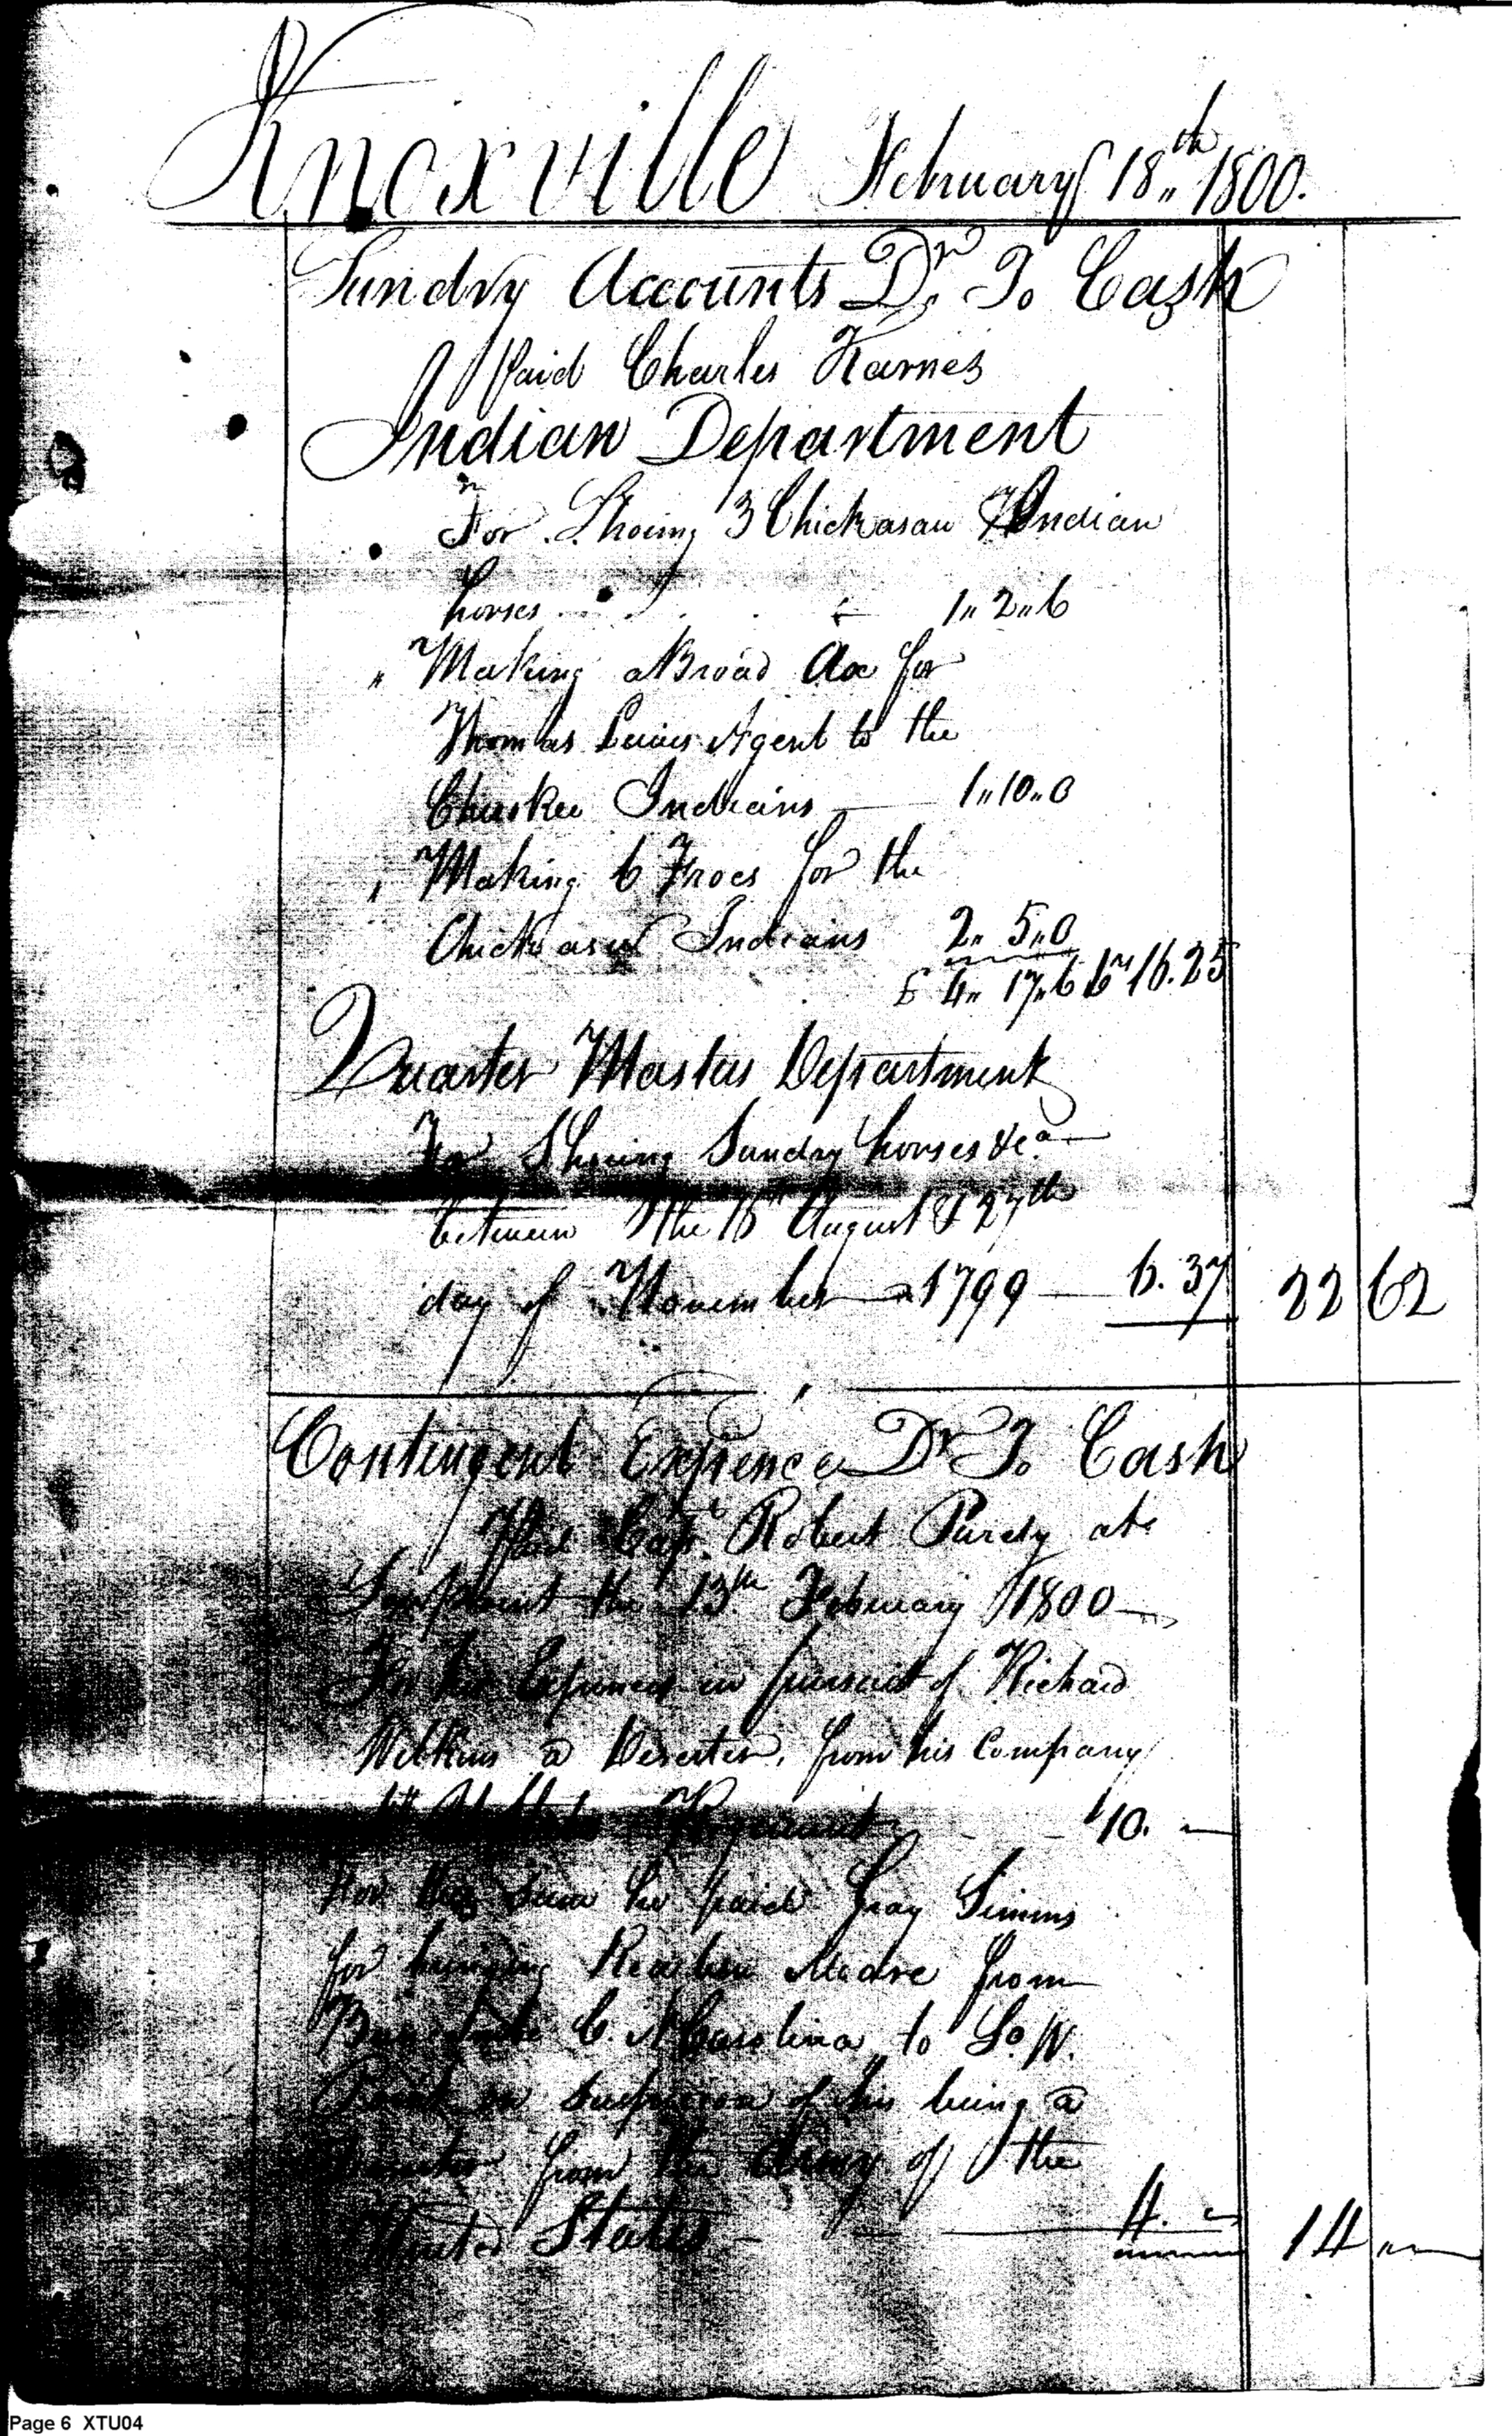 Knoxville February 18th 1800.
Sundry Accounts Dr. To Cash
Paid Charles Karnes
Indian Department
For Shoeing 3 Chickasaw Indian
horses 1,, 2,, 6
" Making a Broad Ax for
Thomas Lewis Agent to the
Cherokee Indians 1,, 10,, 0
" Making 6 Froes for the
Chickasaw Indians 2,, 5,, 0
£ 4,, 17,, 6 16.25
Quarter Masters Department
For Shoeing Sundry horses &ca
between the August & 27th
day of November 1799 — 6.37 22 62
Contingent Expence Dr To Cash
Paid Capt. Robert Purdy at
the 13th February 1800
For his Expences in pursuit of Richard
Wilkins a Deserter, from his Company
Regiment 10. —
For this Sum he paid Gray Simms
for bringing Reuben Moore from
C. N Carolina to So. W.
Point on Suspicion of his being a
Deserter from the Army of the
United States 4. — 14 —
Page 6 XTU04